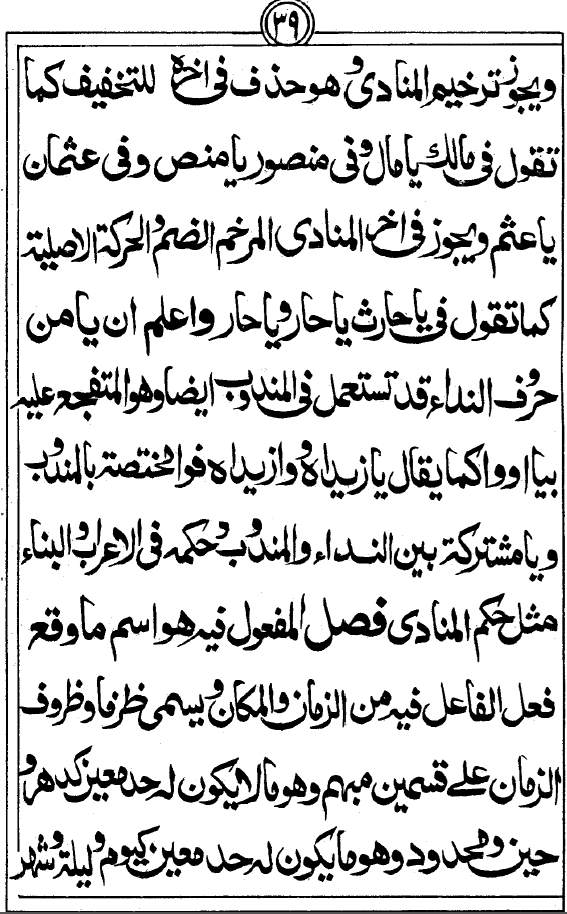 ٣٩
ويجوز ترخيم المنادى وهو حذف فى اخره للتخفيف كما
تقول فى مالك يا مال وفى منصور يا منص وفى عثمان
يا عثم ويجوز فى اخر المنادى المرخم الضم والحركة الاصلية
كما تقول فى يا حارث يا حار ويا حار واعلم ان يا من
حروف النداء قد تستعمل فى المندوب ايضا وهو المتفجع عليه
بيا او وا كما يقال يا زيداه ووازيداه فوا المختصة بالمندوب
ويا مشتركة بين النداء والمندوب وحكمه فى الاعراب والبناء
مثل حكم المنادى فصل المفعول فيه هو اسم ما وقع
فعل الفاعل فيه من الزمان والمكان ويسمى ظرفا وظروف
الزمان على قسمين مبهم وهو ما لا يكون له حد معين كدهر و
حين ومحدود وهو ما يكون له حد معين كيوم وليلة وشهر